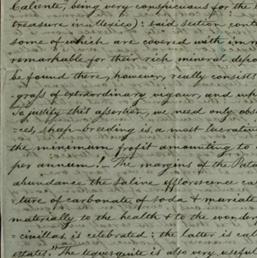 Caliente, being very conspicuous for the
treasure in Mexico): said section, cont
some of which are covered with
remarkable for their rich mineral depo
be found there, however, really consists
grass of extraordinary vigour, and wh
to justify this assertion, we need only obs
sheep-breeding is a most lucrative
the minimum profit amounting to
per annum! The margins of the
abundance the saline efflorescence ca
ture of carbonate of soda & muriate
materially to the health & to the wonder
is celebrated: the latter is cal
The tequezquite is also very useful